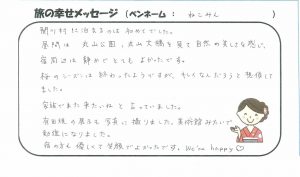 旅の幸せメッセージ (ペンネーム： ねこみん )
関り村に泊まるのは初めてでした。
昼間は丸山公園、丸山大橋を見て自然の美しさを感じ、
宿周辺は静かでとてもよかったです。
桜のシーズンは終わったようですが、キレイなんだろうと想像して
ました。
家族でまた来たいねと言っていました。
有田焼の展示も写真に撮りました。美術館みたいで
勉強になりました。
宿の方も優しくて笑顔でよかったです。We're happy♡